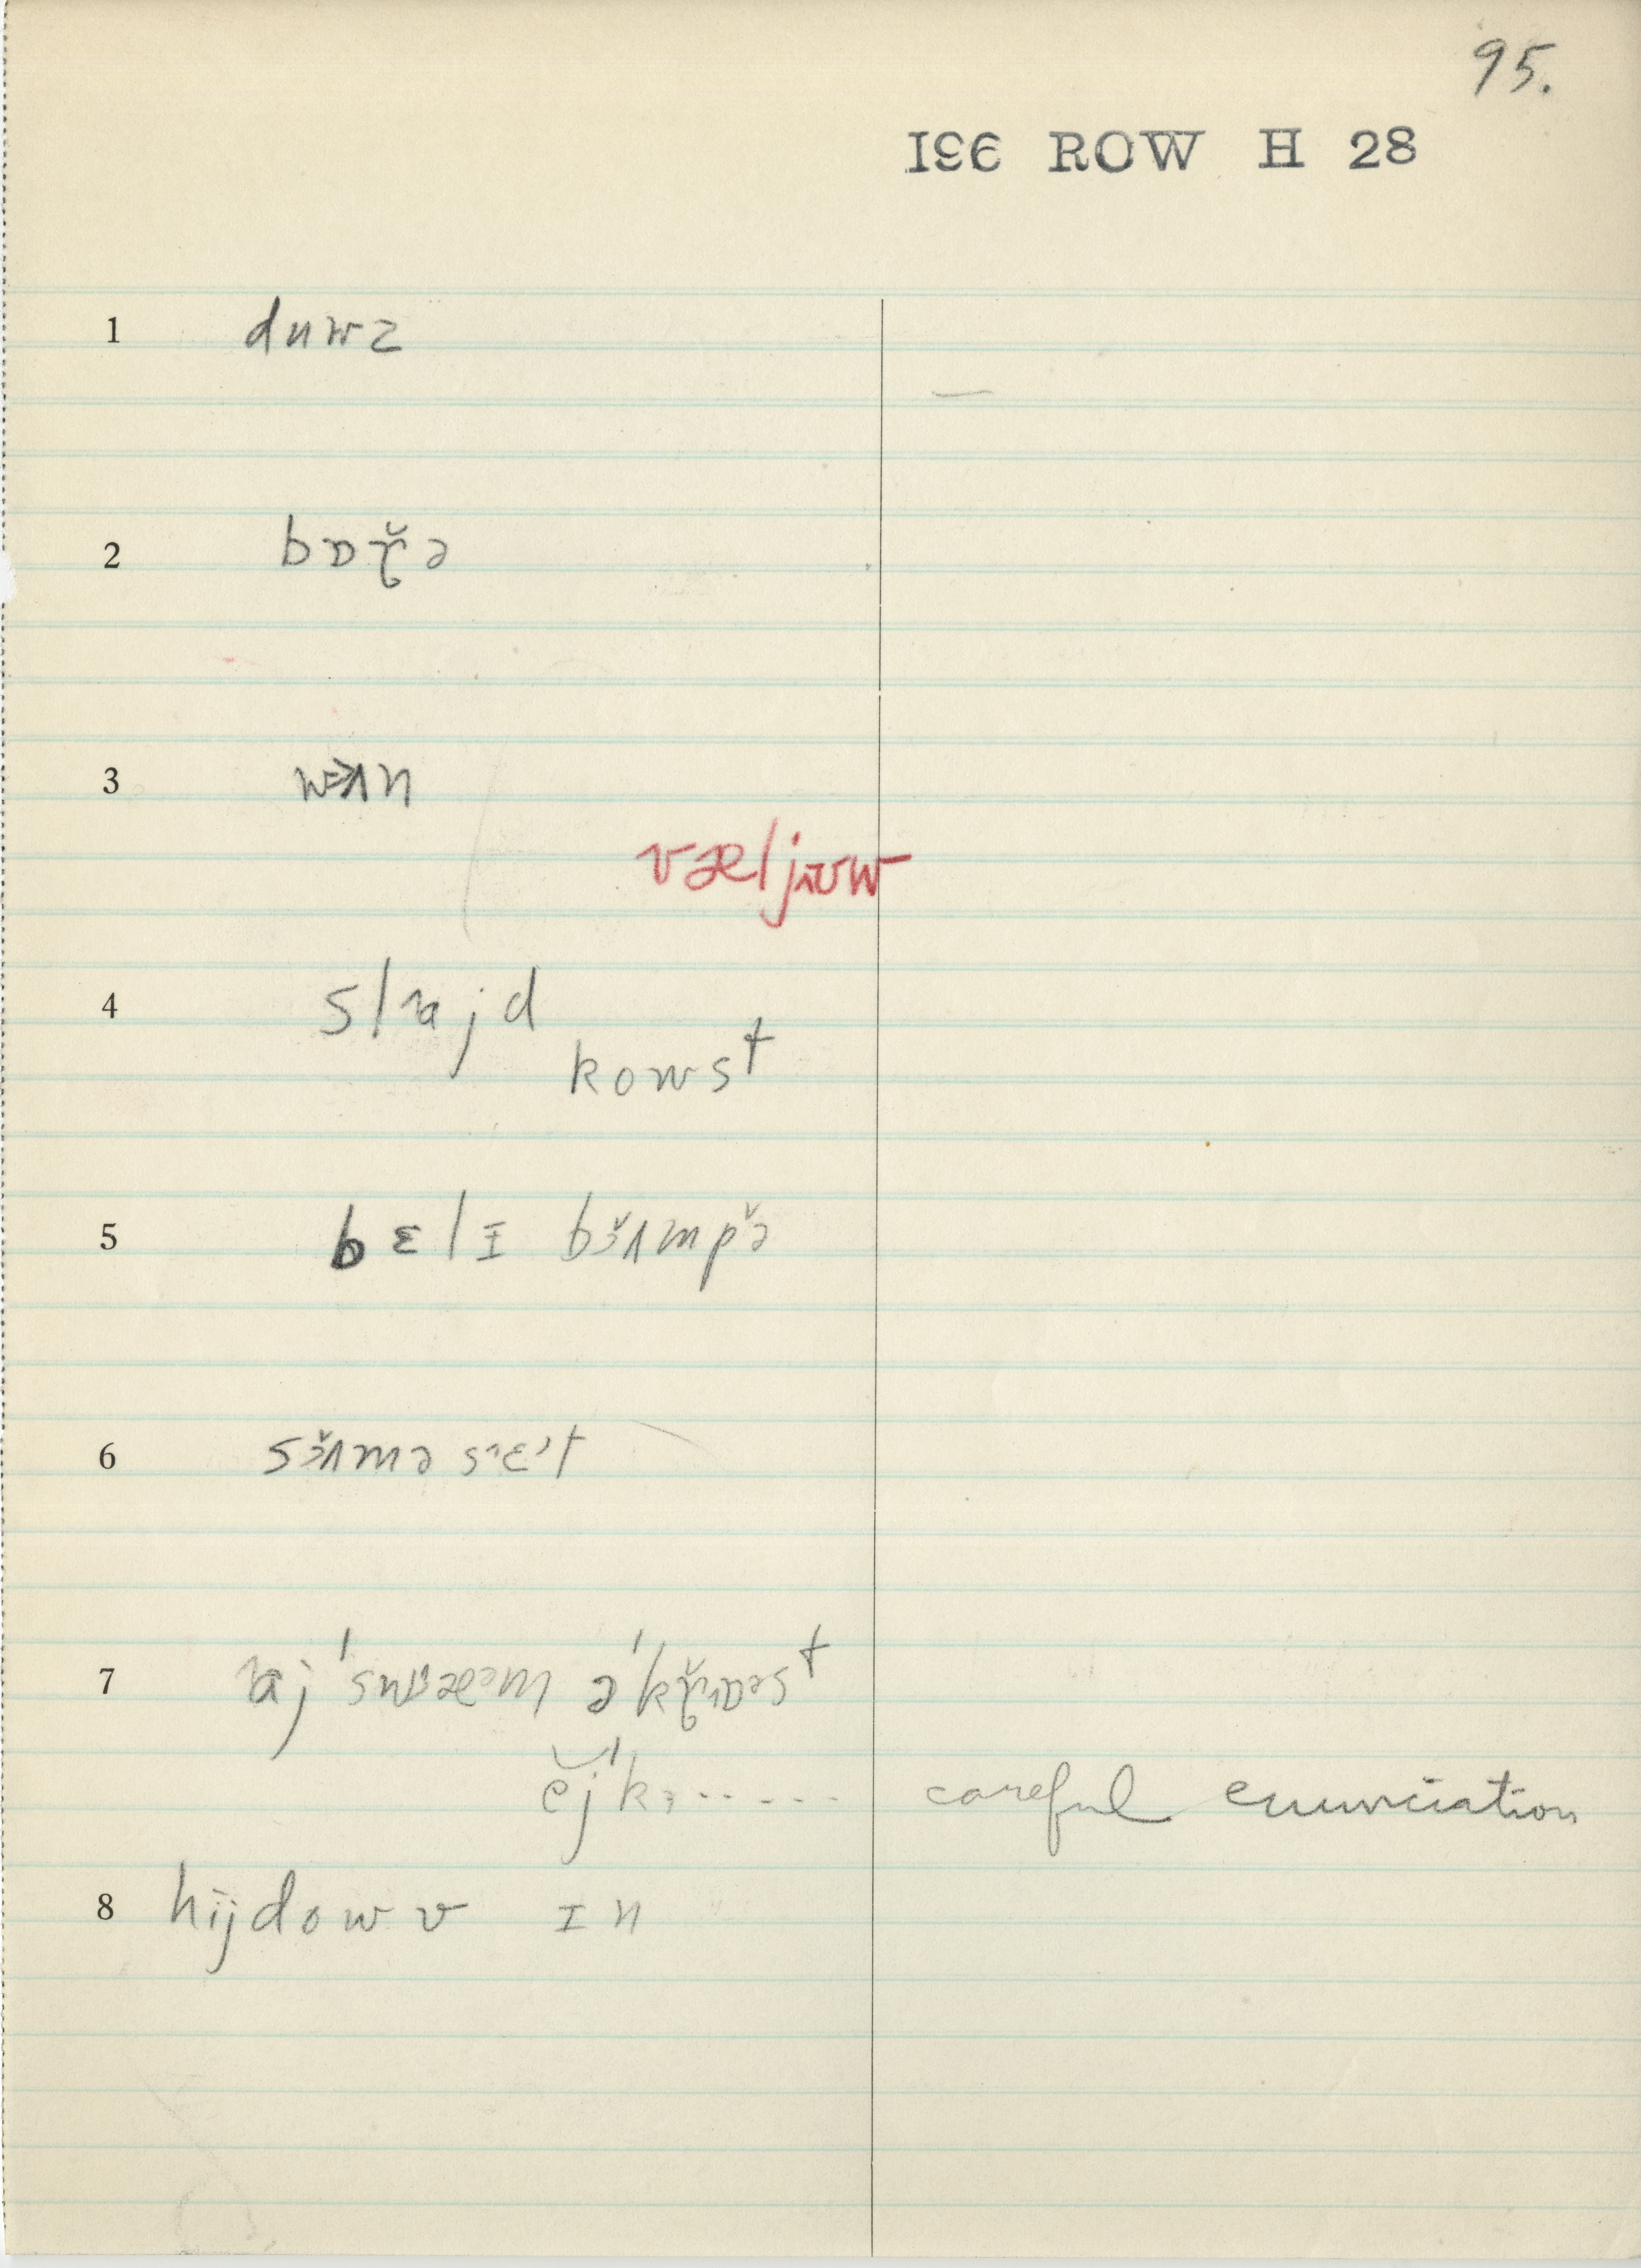 95.
196 ROW H 28
1 duwz
2 bɒɽ̆ə
3 wɜʌn
væljʊw
4 slajd
kowst
5 bɛlɪ bɜ̆ʌmpə̆
6 sɜ̆ʌməsɛt
7 aj 'swæəm ə'kɽ̆ɒəst
ĕj'kɜ......  careful enunciation
8 hijdowv ɪn